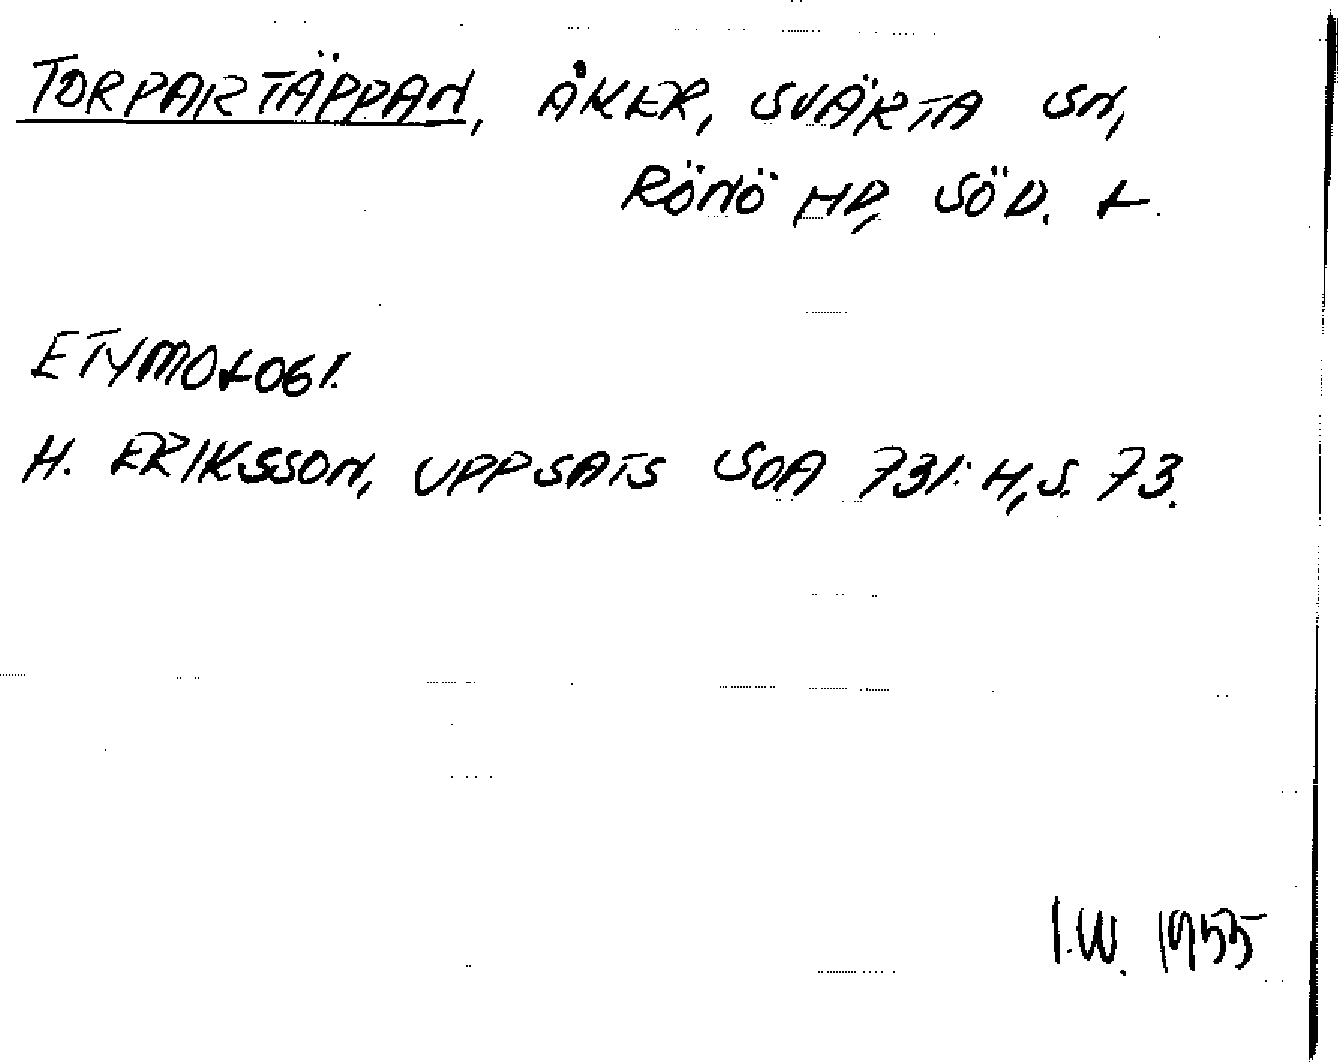 TORPARTÄPPAN, ÅKER, SVÄRTA SN,
RÖNÖ HD, SÖD. L.
ETYMOLOGI.
H. ERIKSSON, UPPSATS SOA 731:4, S. 73.
I.W. 1955